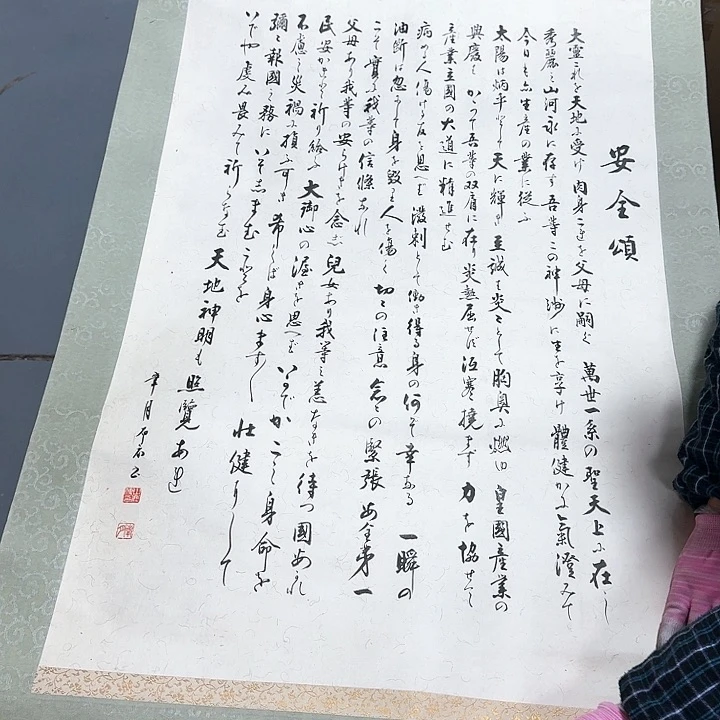 安全頌
大靈これを天地に受け 肉身これを父母に嗣ぐ 萬世一系の聖天上に在し
秀麗の山河永に存す 吾等この神洲に生を享け 體健かに氣澄みて
今日も亦生産の業に從ふ
太陽は炳乎として天に輝き 至誠は炎々として胸奥に燃ゆ 皇國産業の
興廢はかかつて吾等の双肩に在り 炎熱屈せず 沍寒撓まず 力を協せて
産業立國の大道に精進せむ
病める人傷ける友を思へば 溌剌として働き得る身の何ぞ幸なる 一瞬の
油断は忽にして身を毀ち人を傷く 切々の注意 念々の緊張 安全第一
こそ實に我等の信條なれ
父母あり我等の安らけきを念じ 兒女あり我等の恙なきを待つ 國あり
民安かれと祈り給ふ 大御心の渥きを思へば いかでかこの身命を
不慮の災禍に損ふべき 希くば身心ますます壯健にして
彌々報國の務にいそしまむことを
いでや虔み畏みて祈らなむ 天地神明も照覽あれ